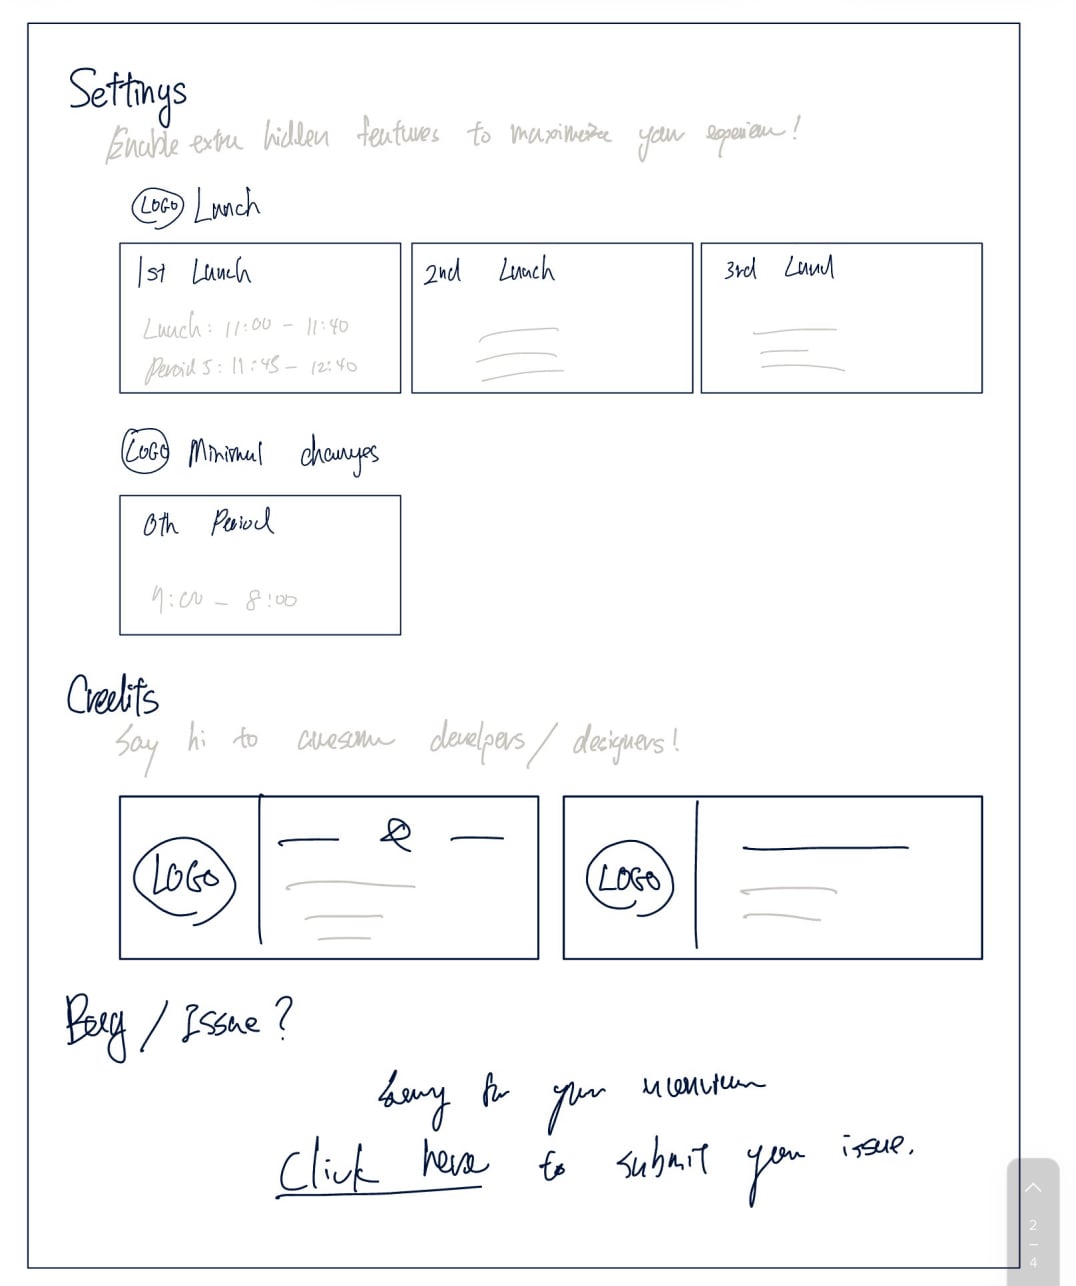 Settings
Enable extra hidden features to maximize your experien!
LOGO Lunch
1st Lunch
Lunch: 11:00 - 11:40
Peroid 5: 11:45 - 12:40
2nd Lunch
3rd
LOGO Minimal changes
0th Period
7:00 - 8:00
Credits
Say hi to awesome develpers / designers!
LOGO
&
LOGO
Bug / Issue?
Sorry for your
Click here to submit your issue.
2
4